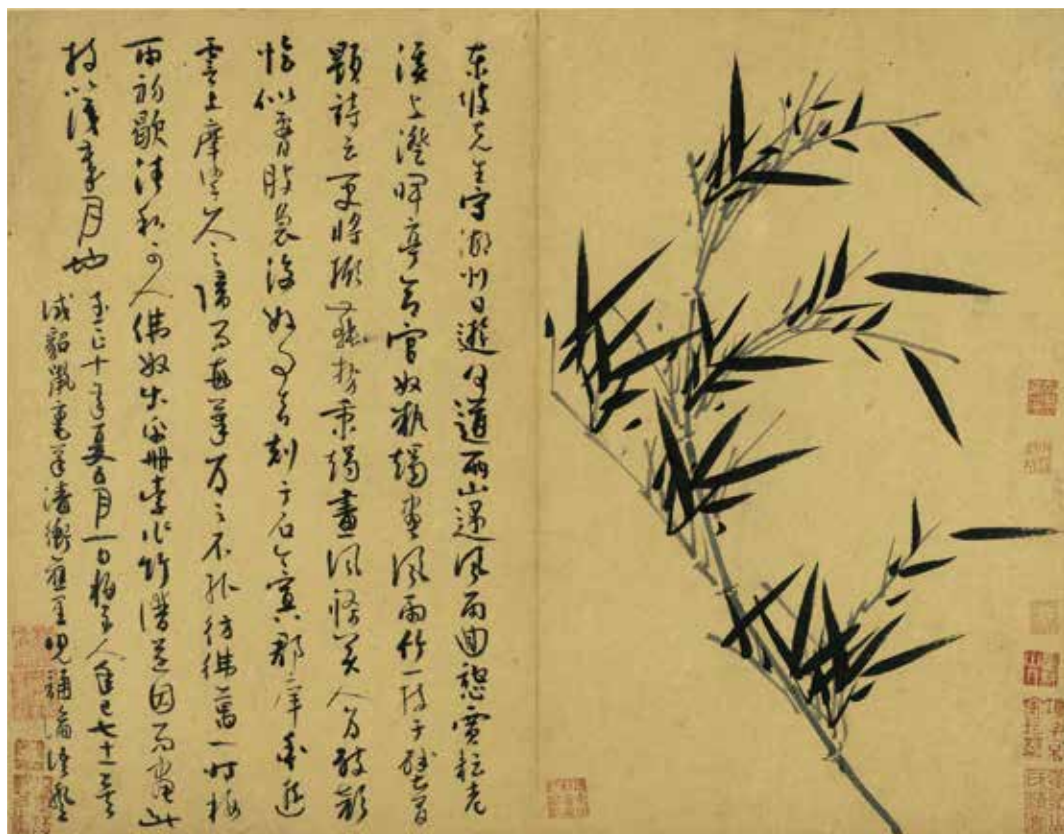 東坡先生守湖州日遊何道兩山遇風雨回憩賈耘老
溪上澄暉亭命官奴執燭畫風雨竹一枝于壁間
題詩云更將掀舞勢秉燭畫風筱美人為破顏
恰似腰肢裊後好事者刻于石今寘郡庠予遊
霅上摩挲久之歸而每筆為之不能彷彿萬一時梅
雨初歇清和可人佛奴出此冊索作竹譜因而畫此
枝以識歲月也
至正十年夏五月一日梅道人年已七十一矣
試貂鼠毫筆潘衡舊墨